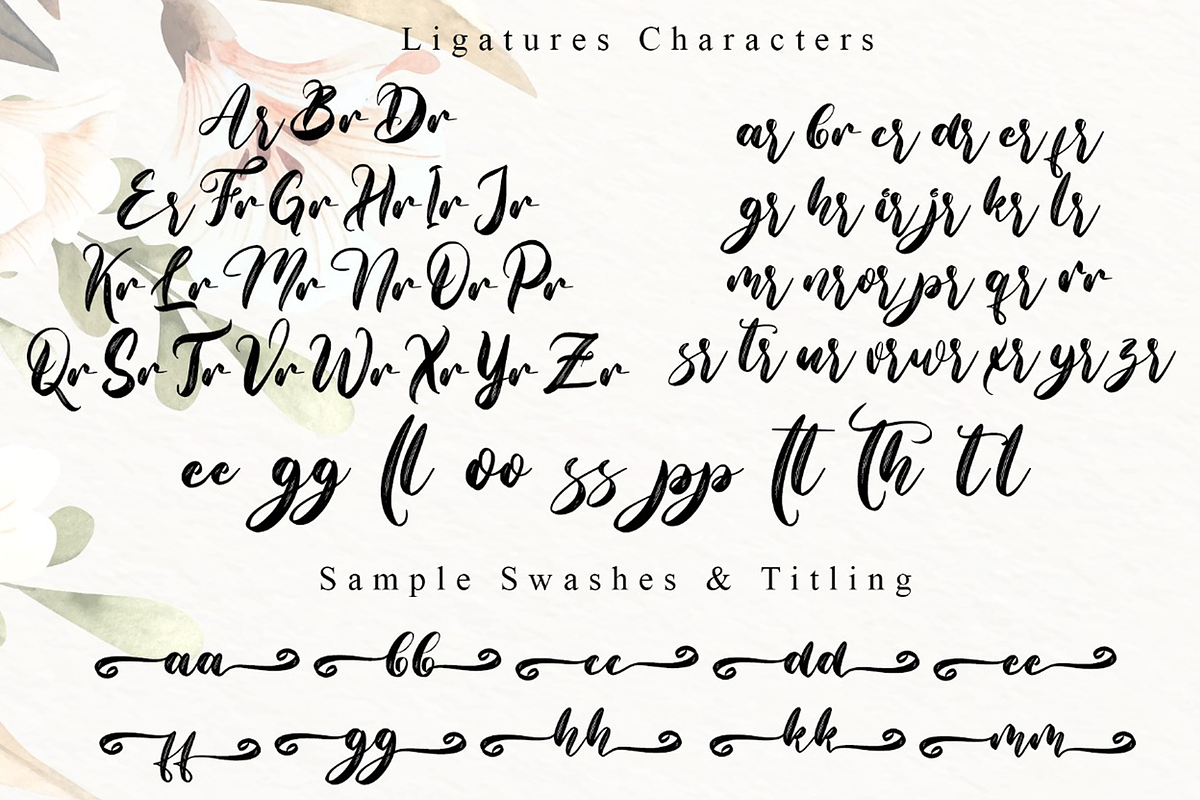 Ligatures Characters
Ar Br Dr
Er Fr Gr Hr Ir Jr
Kr Lr Mr Nr Or Pr
Qr Sr Tr Vr Wr Xr Yr Zr
ar br cr dr er fr
gr hr ir jr kr lr
mr nr or pr qr rr
sr tr ur vr wr xr yr zr
ee gg fl oo ss pp ft th tl
Sample Swashes & Titling
aa bb cc dd ee
ff gg hh kk mm